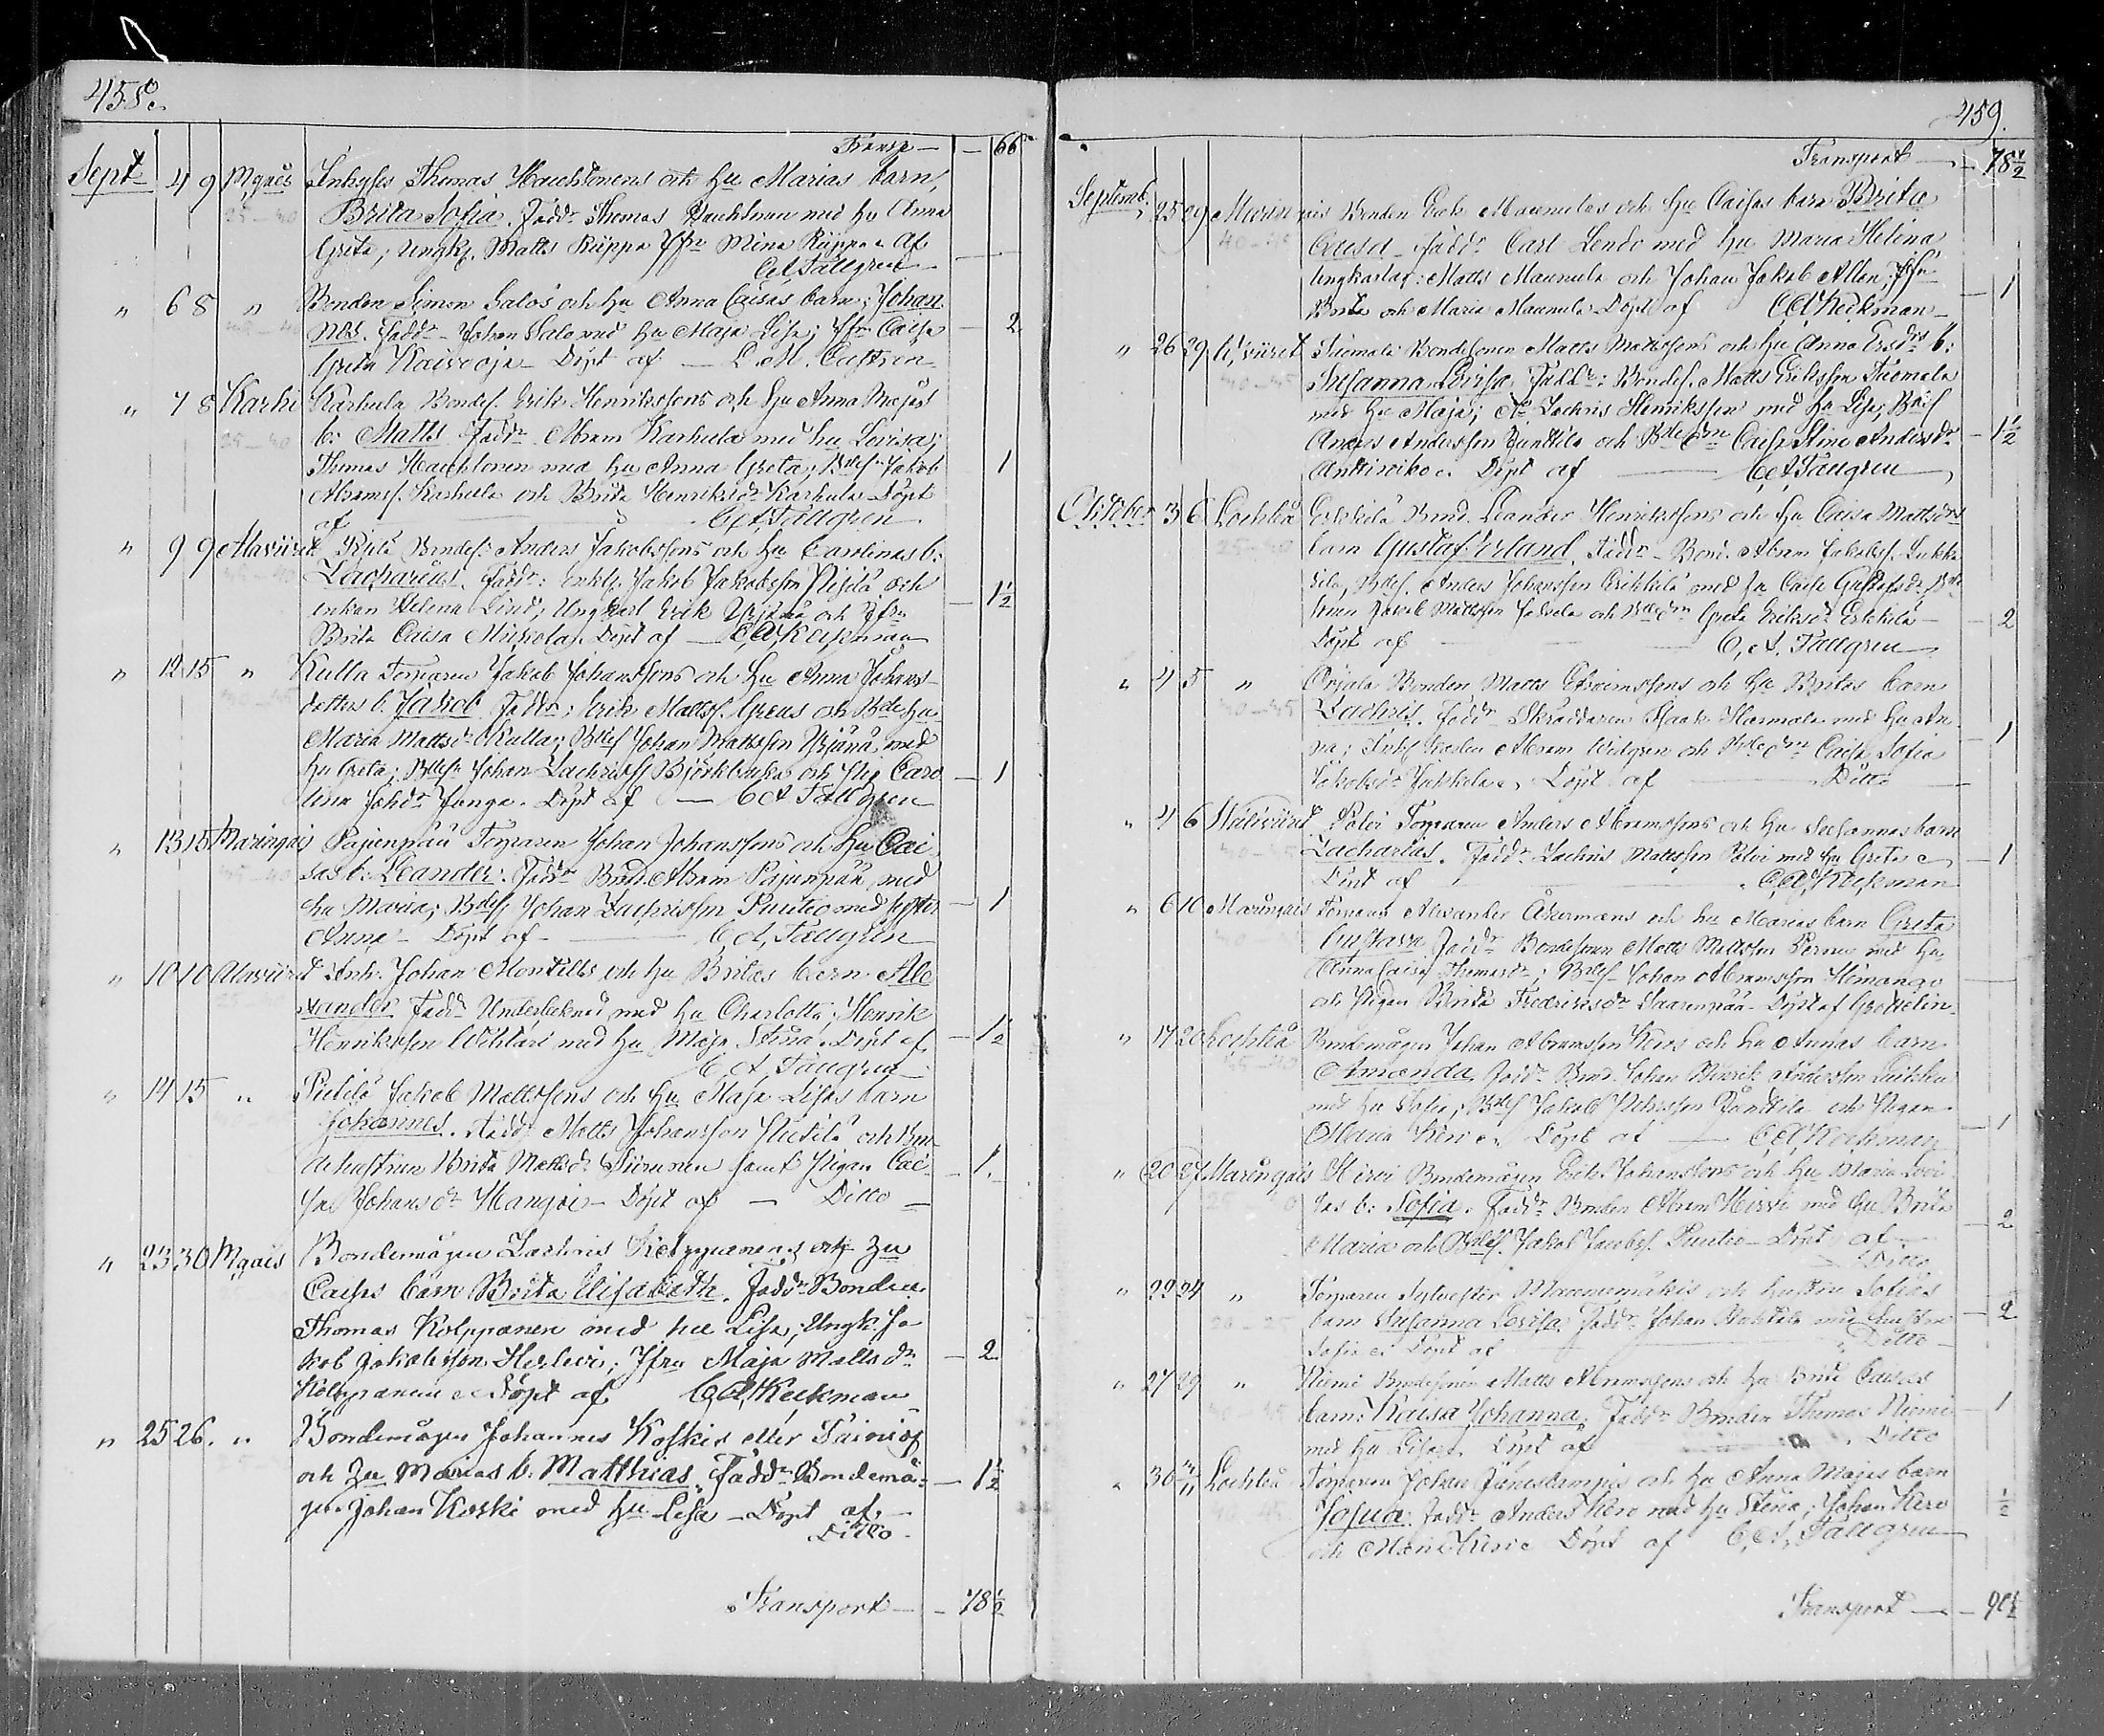 458.
Transp — — 66
Sept 4 9 Mgais Inhyses Thomas Hauhtonens och Hu Marias barn,
25-40 Brita Sofia. Faddr Thomas Hauhtonen med Hu Anna
Greta; Ungk. Matts Riippa Jfru Mina Riippa. Af
C A Tallgren —
" 6 8 " Bonden Simon Salos och Hu Anna Caisas barn; Johan
Faddr Johan Salo med Hu Maja Lisa; Jfru Caisa — 2
Greta Kaivooja — Döpt af — L. M. Castren
" 7 8 Karhi Karhula Bondes. Erik Henrikssons och Hu Anna Majas
25-40 b: Matts Faddr Abram Karhula med hu Lovisa;
Thomas Hauhtonen med hu Anna Greta; Bdes. Jakob 1
Abrams. Karhula och Brita Henriksdr Karhula Döpt
af — C A Tallgren
" 9 9 Alaviiret Bondes: Anders Jakobssons och Hu Carolinas b:
Zacharias. Faddr: Enkl. Jakob Jakobsson och
enkan Helena Lind; Ungkarl Erik och Jfru — 1 1/2
Brita Caisa Döpt af — C A Keckman
" 12 15 " Kulla Torparen Jakob Johanssons och Hu Anna Johans-
dotters b. Jakob Faddr: Erik Matts. och Bde hu
Maria Mattsdr Kulla; Bdes Johan Mattsson Yrjänä med
hu Greta; Bdes. Johan Zachriss. Björkbacka och Pig. Caro — 1
lina Johdr Junga. Döpt af — C A Tallgren
" 13 15 Maringais Pajunpää Torparen Johan Johanssons och Hu Cai
sas b: Leander: Faddr Bond. Abram Pajunpää med
hu Maria; Bdes Johan Zachrisson Puutio med syster — 1
Anna — Döpt af — C. A. Tallgren
" 10 10 Alaviiret Inh. Johan Montells och Hu Britas barn Ale
xander Faddr med hu Charlotta; Henrik
Henriksson med hu Maja Stina. Döpt af — 1 1/2
C A Tallgren
" 14 15 " Jakob Mattssons och Hu Maja Lisas barn
Johannes. Faddr Matts Johansson och Bon-
dehustrun Brita Mattsdr samt Pigan Cai- — 1.
sa Johansdr — Döpt af — Ditto —
" 23 30 Mgais Bondemågen Zachris Kolppanens och Hu
Caisas barn Brita Elisabeth. Faddr Bonden
Thomas Kolppanen med hu Lisa; Ungk. Ja
kob Jakobsson Herlevi; Jfru Maja Mattsdr — 2
Kolppanen. Döpt af C A Keckman
" 25 26. " Bondemågen Johannes Koskis eller
och Hu Marias b. Matthias. Faddr: Bondemå- — 1 1/2
gen Johan Koski med Hu Lisa — Döpt af —
Ditto
Transport — — 78 1/2
459.
Transport — — 78 1/2
Septemb. 25 29 Marin nis Bonden Erik Maunulas och Hu Caisas barn Brita
40-45 Caisa Faddr Carl Lendo med Hu Maria Helena
Ungkarlar: Matts Maunula och Johan Jakob; Jfru
Brita och Maria Maunula Döpt af C A Keckman — 1
" 26 29 viiret Tuomala Bondesonen Matts Mattssons och Hu Anna b:
40-45 Susanna Lovisa Faddr: Bondes. Matts Eriksson Tuomala
med hu Maja; Zachris Henriksson med hu Lisa; Bdes
Anders Andersson Junttila och Caisa Stina Andersdr — 1 1/2
Döpt af — C A Tallgren
October 3 6 Lochteå Erkkilä Bond. Leander Henrikssons och Hu Caisa Mattsdrs
25-40 barn Gustaf Erland Faddr Bond. Abram Jakobs.
Bdes. Anders Johansson Erkkilä med hu Caisa Gustafsdr
Jakob Mattsson och Greta Eriksdr Erkkilä — 2
Döpt af — C. A. Tallgren
" 4 5 " Orjala Bonden Matts Efraimssons och Hu Britas barn
40-45 Zachris. Faddr Skräddaren Isaak med Hu An
na; Abram Widgren och Caisa Sofia — 1
Jakobsdr Döpt af — Ditto
" 4 6 Torparen Anders Abramssons och Hu Susannas barn
40-45 Zacharias. Faddr Zachris Mattsson med hu Greta — 1
Döpt af — C A Keckman
" 6 10 Marungais Torparen Alexander Åkermans och Hu Marias barn Greta
Gustava Faddr Bondesonen Matts Mattsson med hu
Anna Caisa Thomasdr; Bdes Johan Abramsson Himango
och Pigan Brita Fredriksdr Saarenpää — Döpt af
" 17 20 Lochteå Bondemågen Johan Abramsson Keros och hu Annas barn
Amanda Faddr Bond. Johan Henrik Andersson
med hu Sofia; Bdes Jakob Junttila och Pigan
Maria Kero. Döpt af — C A Keckman — 1
" 20 27 Marungais Bondemågen Erik Johanssons och Hu Maria Lovi
sas b: Sofia. Faddr Bonden Abram med hu Brita — 2
Maria och Bdes. Jakob Jacobs. Puutio — Döpt af —
Ditto
" 22 24 " Torparen Sylvester Maunumäkis och hustru Sofias
20-25 barn Susanna Lovisa Faddr Johan med hustru — 2
Sofia Döpt af — Ditto
" 27 29 " Niemi Bondesonen Matts Abramssons och Hu Brita Caisas
40-45 barn: Kaisa Johanna; Faddr Bonden Thomas Niemi — 1
med hu Lisa. Döpt af — Ditto
" 30 Lochteå Torparen Johan och Hu Anna Majas barn
Josua. Faddr Anders Kero med hu Stina; Johan Kero 1/2
och Kero Döpt af C. A. Tallgren
Transport — — 90 1/2